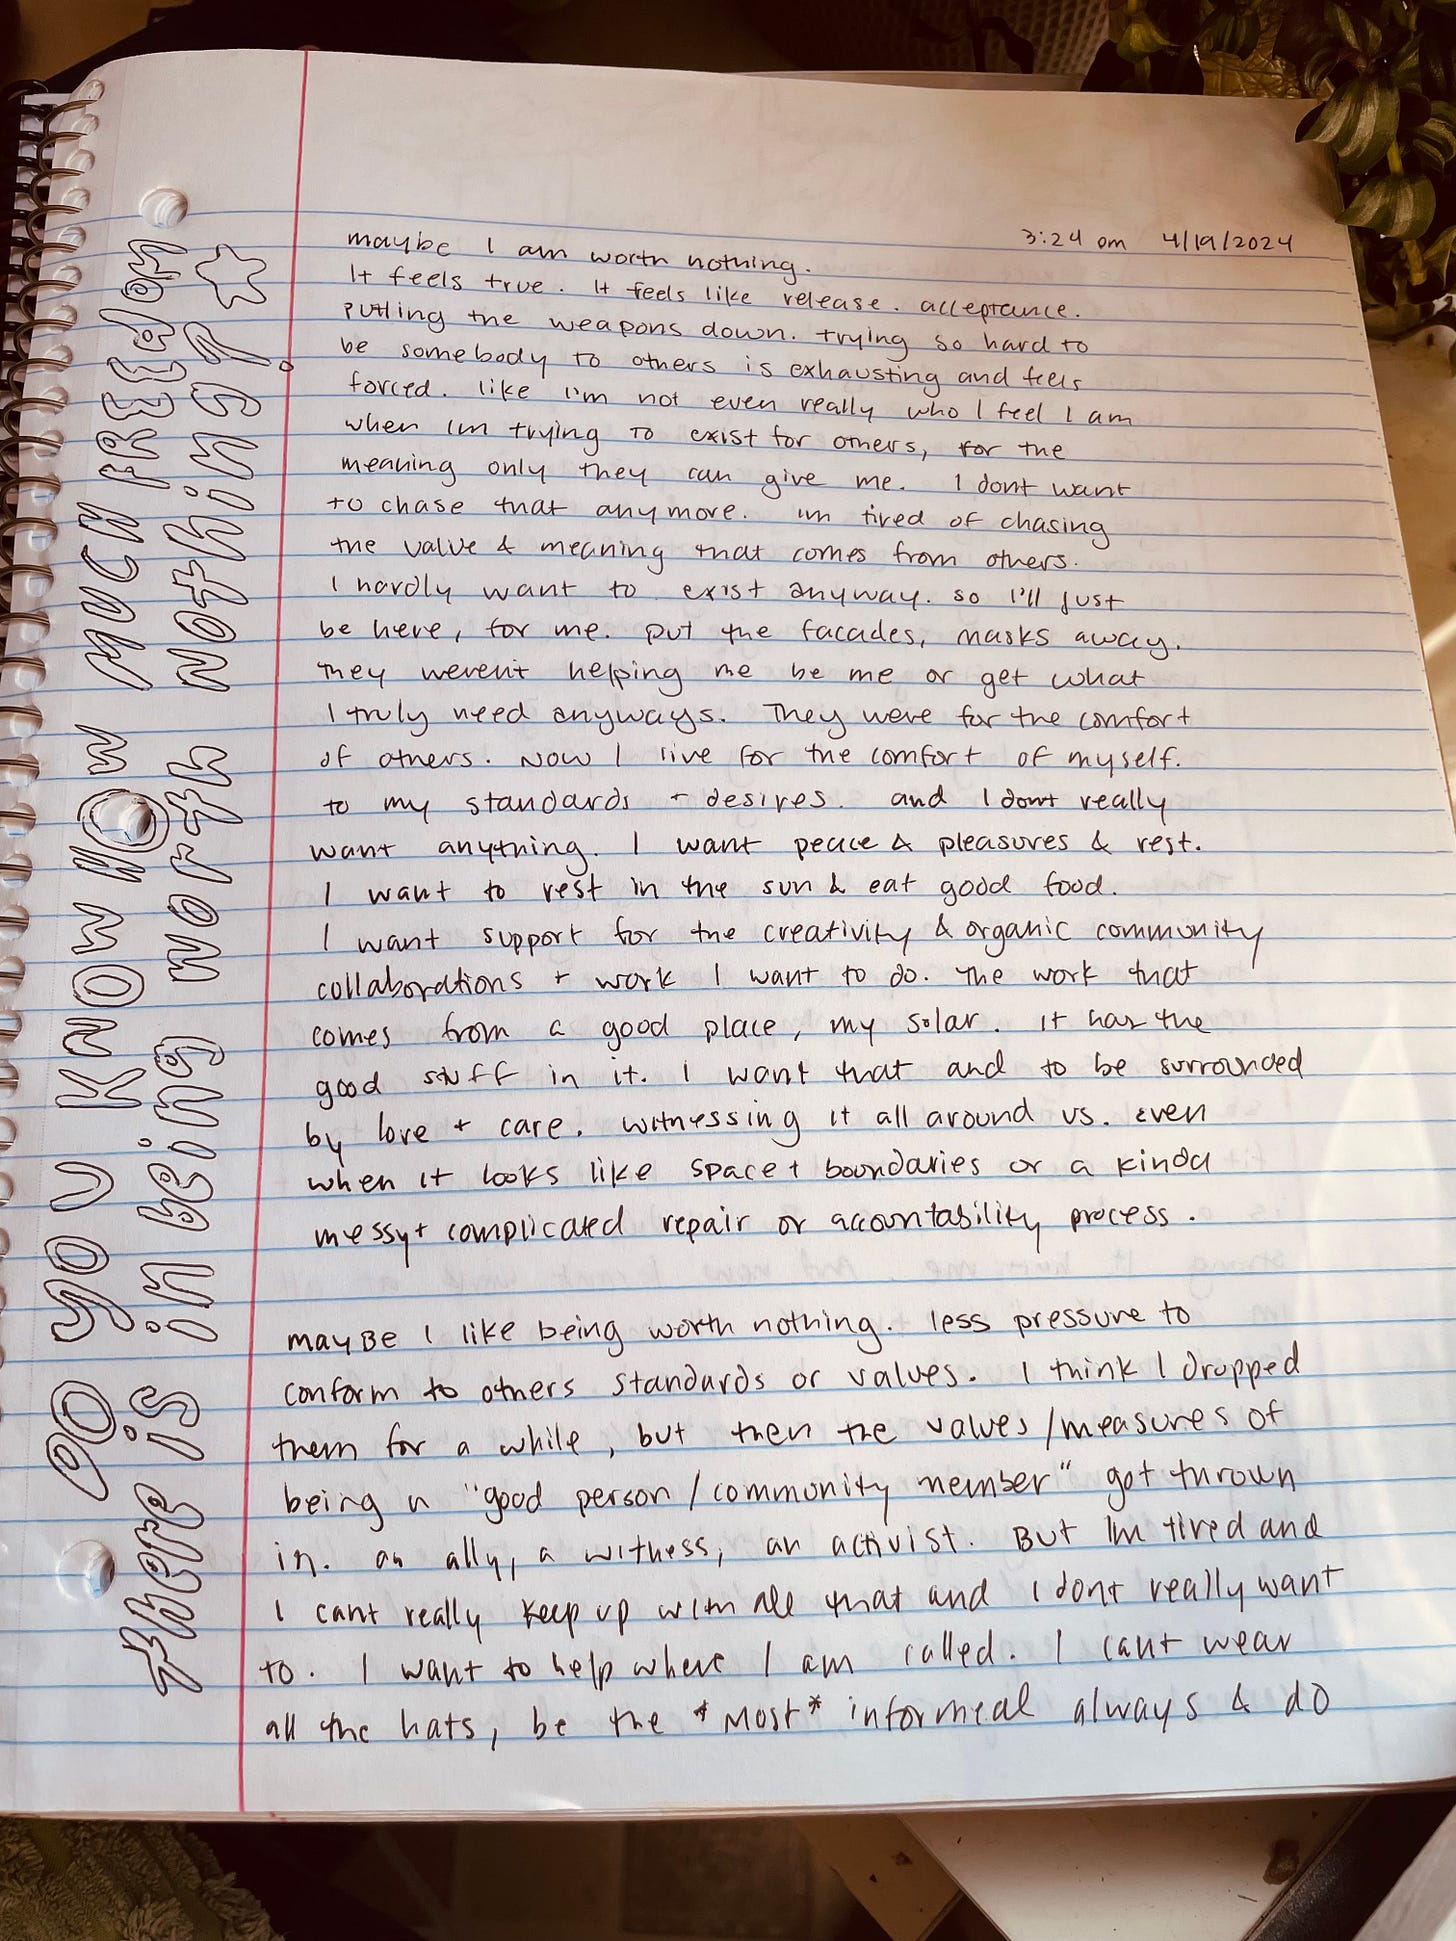 3:24 pm 4/19/2024
maybe I am worth nothing.
It feels true. It feels like release. acceptance.
Putting the weapons down. trying so hard to
be somebody to others is exhausting and feels
forced. like I'm not even really who I feel I am
when Im trying to exist for others, for the
meaning only they can give me. I dont want
to chase that anymore. im tired of chasing
the value & meaning that comes from others.
I hardly want to exist anyway. so I'll just
be here, for me. put the facades, masks away.
They weren't helping me be me or get what
I truly need anyways. They were for the comfort
of others. Now I live for the comfort of myself.
to my standards + desires. and I dont really
want anything. I want peace & pleasures & rest.
I want to rest in the sun & eat good food.
I want support for the creativity & organic community
collaborations + work I want to do. The work that
comes from a good place, my solar. it has the
good stuff in it. I want that and to be surrounded
by love + care. witnessing it all around us. Even
when it looks like space + boundaries or a kinda
messy + complicated repair or accountability process.
mayBe I like being worth nothing. less pressure to
conform to others standards or values. I think I dropped
them for a while, but then the values/measures of
being a "good person/community member" got thrown
in. an ally, a witness, an activist. But Im tired and
I cant really keep up with all that and I dont really want
to. I want to help where I am called. I cant wear
all the hats, be the *Most* informeal always & do
DO yoU KNOW HOW MUCH FREEdom
there is in being worth nothing?